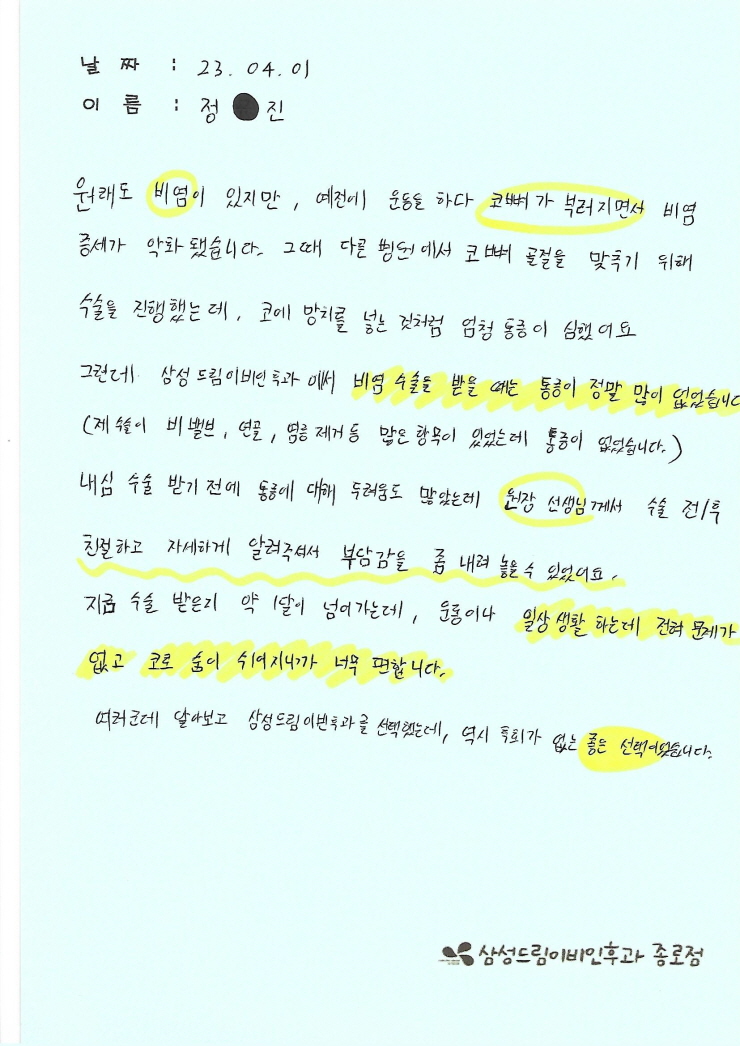 날 짜 : 23. 04. 01
이 름 : 정 ● 진
원래도 비염이 있지만, 예전에 운동을 하다 코뼈가 부러지면서 비염
증세가 악화됐습니다. 그때 다른 병원에서 코뼈 골절을 맞추기 위해
수술을 진행했는데, 코에 망치를 넣는 것처럼 엄청 통증이 심했어요
그런데 삼성드림이비인후과에서 비염 수술을 받을 때는 통증이 정말 많이 없었습니다
(제 수술이 비밸브, 연골, 염증 제거 등 많은 항목이 있었는데 통증이 없었습니다.)
내심 수술 받기 전에 통증에 대해 두려움도 많았는데 원장 선생님께서 수술 전/후
친절하고 자세하게 알려주셔서 부담감을 좀 내려 놓을 수 있었어요.
지금 수술 받은지 약 1달이 넘어가는데, 운동이나 일상생활 하는데 전혀 문제가
없고 코로 숨이 쉬어지니까 너무 편합니다.
여러군데 알아보고 삼성드림이빈후과를 선택했는데, 역시 후회가 없는 좋은 선택이었습니다.
삼성드림이비인후과 종로점